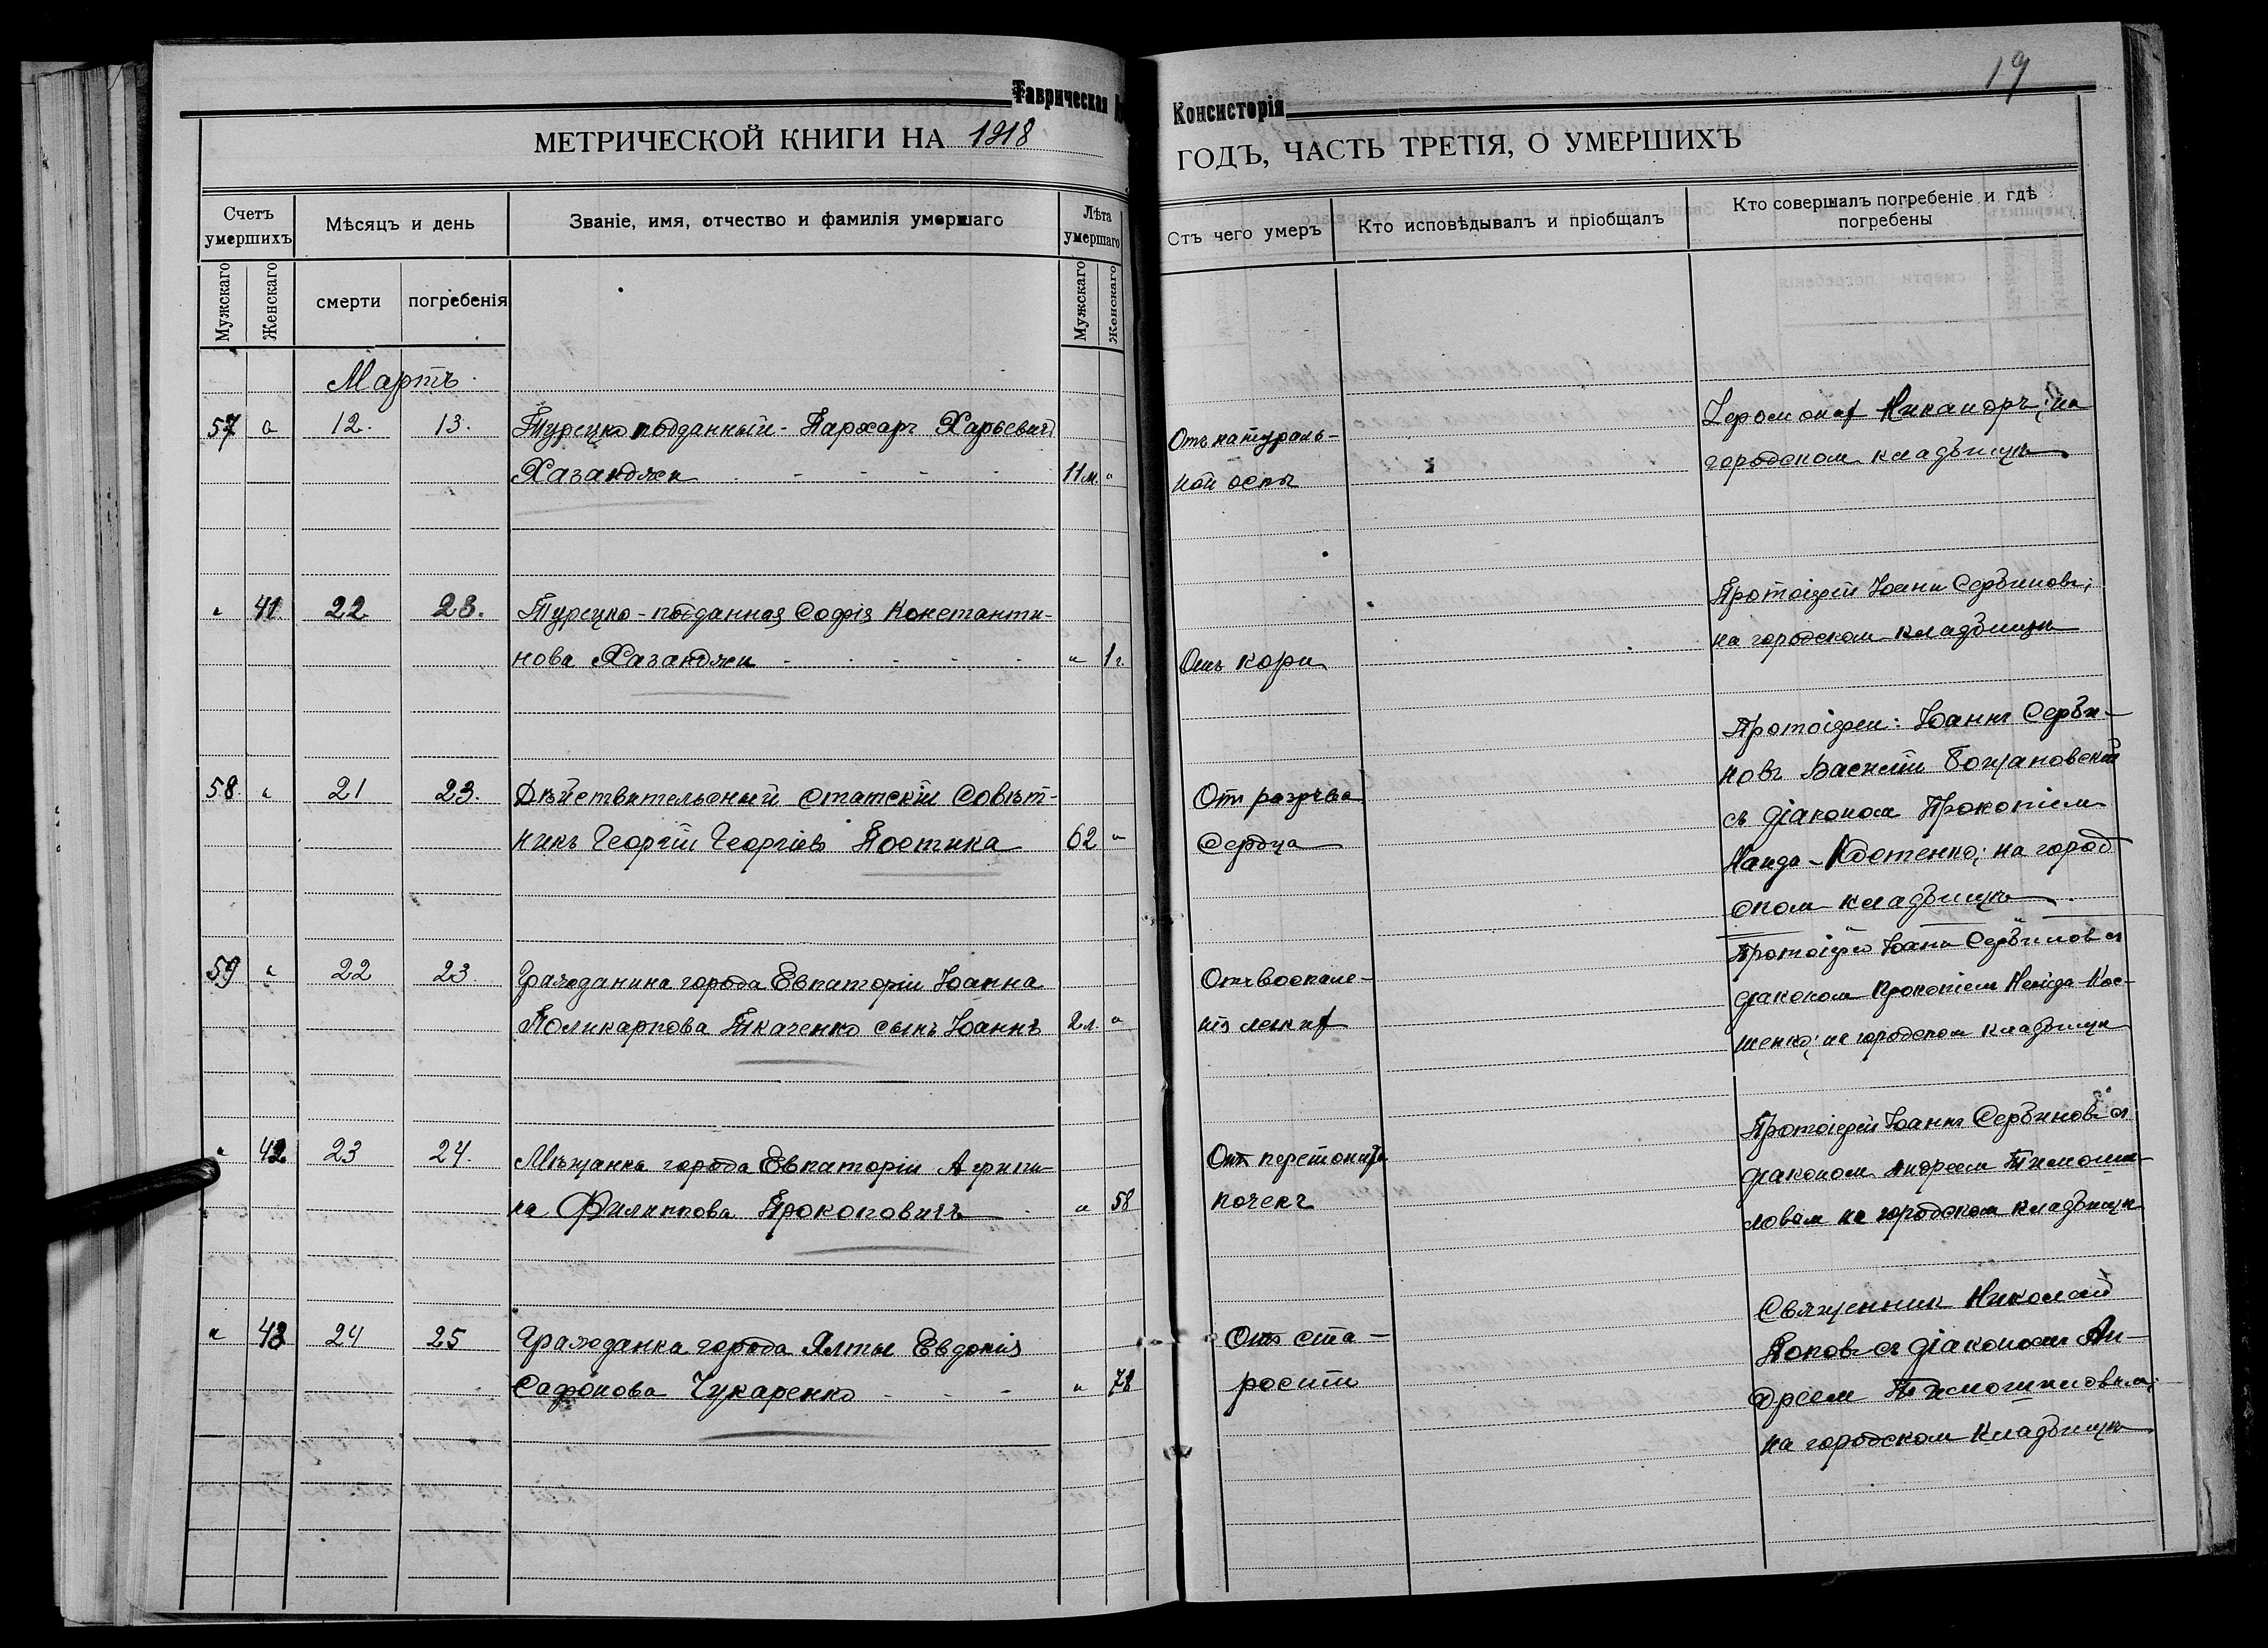 19
Таврическая
Консисторія
МЕТРИЧЕСКОЙ КНИГИ НА 1918
ГОДЪ, ЧАСТЬ ТРЕТІЯ, О УМЕРШИХЪ
Счетъ умершихъ
Мѣсяцъ и день
Званіе, имя, отчество и фамилія умершаго
Лѣта умершаго
Отъ чего умеръ
Кто исповѣдывалъ и пріобщалъ
Кто совершалъ погребеніе и гдѣ
погребены
Мужскаго
Женскаго
смерти
погребенія
Мужскаго
Женскаго
Мартъ
57 " 12. 13. Турецко подданный
Хазанджи 11 м. "
Отъ натураль-
ной оспы
Никандръ; на
городском кладбищѣ
" 41. 22 23. Турецко-подданная Софія Константи-
нова Хазанджи " 1 г.
Отъ кори
Протоіерей Іоаннъ Сербиновъ;
на городском кладбищѣ
58. " 21 23. Дѣйствительный Статскій Совѣт-
никъ Георгій Георгіевъ Поетика 62 "
Отъ разрыва
Сердца
Протоіереи: Іоаннъ Серби-
новъ Василій
съ діаконом Прокопіем
на город
ском кладбищѣ
59 " 22 23. Гражданина города Евпаторіи Іоанна
Поликарпова Ткаченко сынъ Іоаннъ 2 л. "
Отъ воспале-
нія легких
Протоіерей Іоаннъ Сербинов съ
діаконом Прокопіем
на городском кладбищѣ
" 42 23 24. Мѣщанка города Евпаторіи Агрипи-
на Филиппова Прокоповичъ " 58
Отъ перетонита
почекъ
Протоіерей Іоаннъ Сербиновъ съ
діаконом Андреем Тимоши-
ловым на городском кладбищѣ
" 43 24 25 Гражданка города Ялты Евдокія
Сафонова Чукаренко " 78
Отъ ста-
рости
Священник Николай
Попов съ діаконом Ан-
дреем Тимошиловым;
на городском кладбищѣ